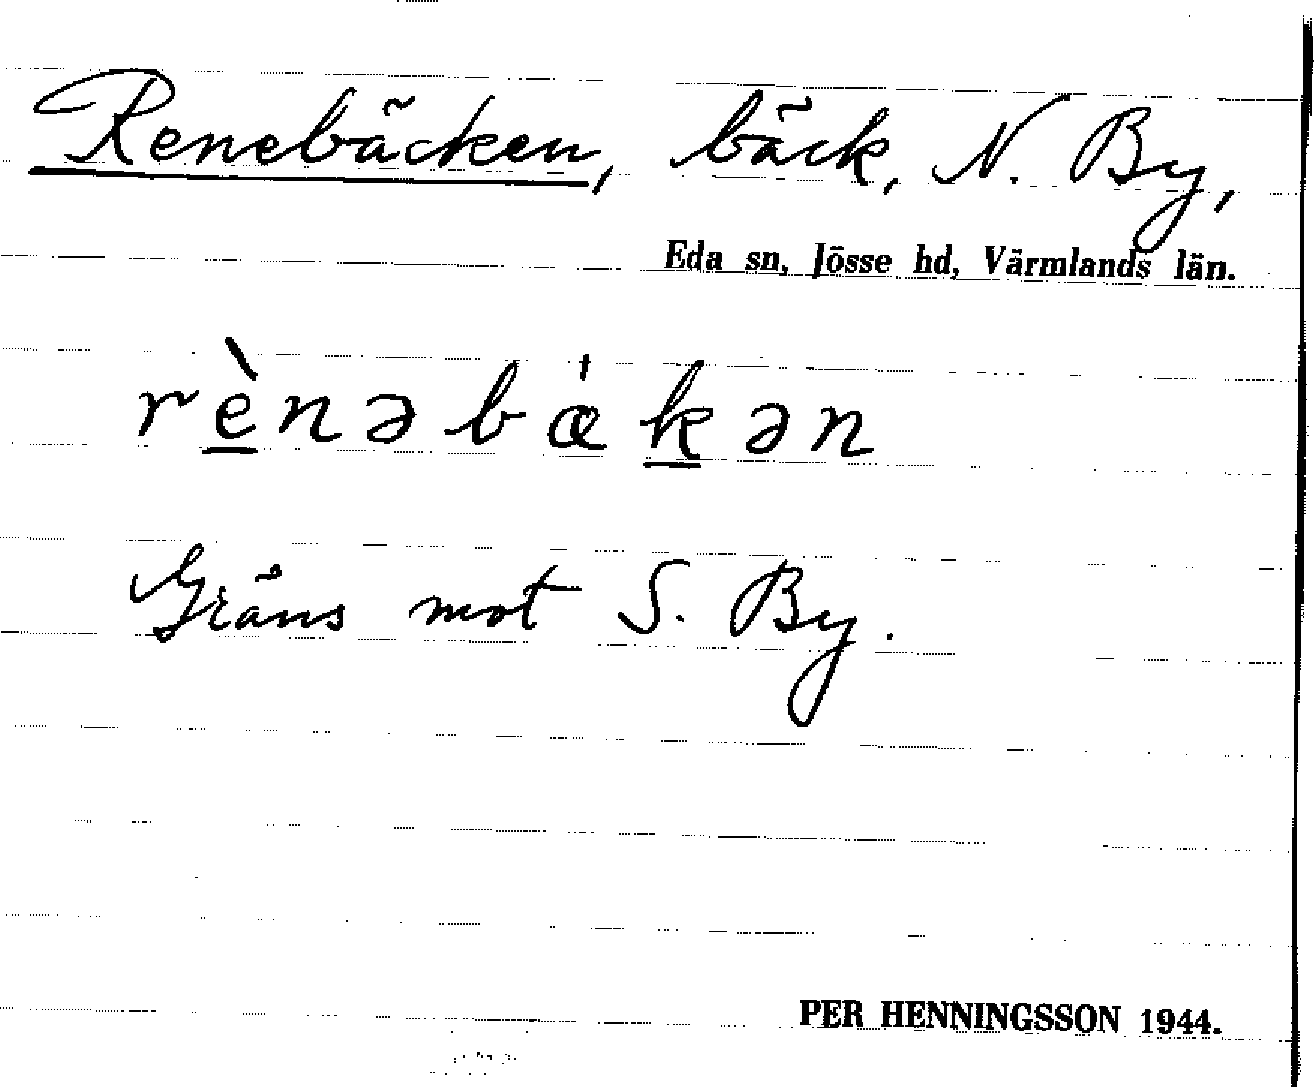 Renebäcken, bäck, N. By,
Eda sn, Jösse hd, Värmlands län.
rènəbǽkən
Gräns mot S. By.
PER HENNINGSSON 1944.